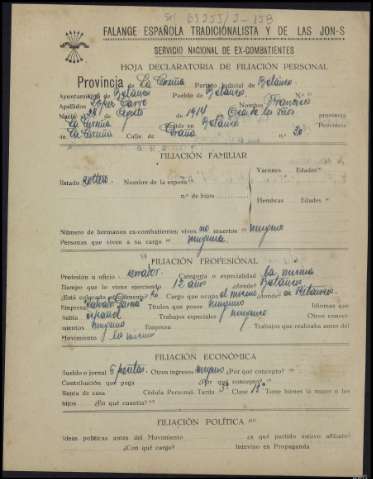 FALANGE ESPAÑOLA TRADICIONALISTA Y DE LAS JON-S
SERVICIO NACIONAL DE EX-COMBATIENTES
HOJA DECLARATORIA DE FILIACIÓN PERSONAL
Provincia de La Coruña Partido Judicial de Betanzos
Ayuntamiento de Betanzos Pueblo de Betanzos N.º
Apellidos López Nombre Francisco
Nació 28 Agosto de 1914 en provincia
La Coruña Reside en Betanzos Provincia
La Coruña Calle de n.º 20
FILIACIÓN FAMILIAR
Varones Edades
Estado soltero Nombre de la esposa
n.º de hijos
Hembras Edades
Número de hermanos ex-combatientes: vivos no muertos ninguno
Personas que viven a su cargo ninguna
FILIACIÓN PROFESIONAL
Profesión u oficio Categoría o especialidad la misma
Tiempo que lo viene ejerciendo 12 años ¿dónde? Betanzos
¿Está colocado actualmente? Cargo que ocupa el mismo ¿dónde? en Betanzos
Empresa Títulos que posee ninguno Idiomas que
habla español Trabajos especiales ninguno Otros conoci-
mientos ninguno Empresa Trabajos que realizaba antes del
Movimiento lo mismo
FILIACIÓN ECONÓMICA
Sueldo o jornal 6 pesetas Otros ingresos ninguno ¿Por qué concepto?
Contribución que paga ¿por qué concepto?
Renta de casa Cédula Personal: Tarifa 3ª Clase Tiene bienes la mujer o los
hijos ¿En qué cuantía?
FILIACIÓN POLÍTICA
Ideas políticas antes del Movimiento ¿a qué partido estuvo afiliado?
¿Con qué cargo? Intervino en Propaganda